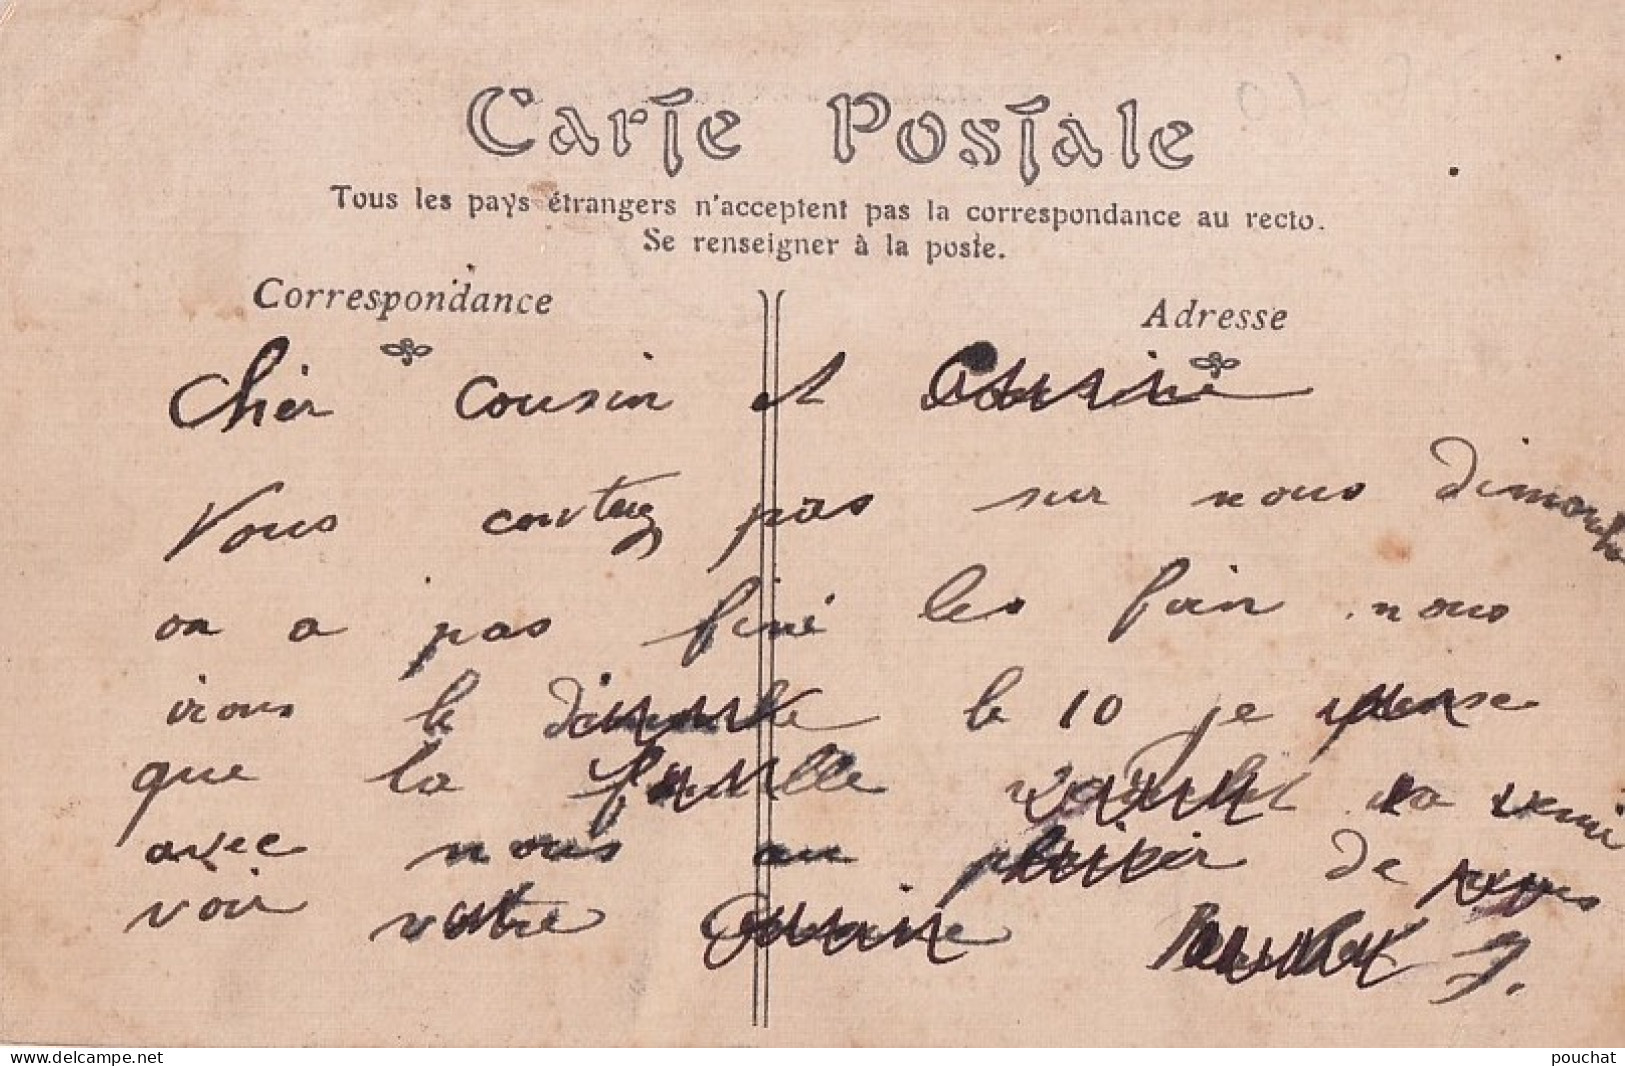 Carte Postale
Tous les pays étrangers n'acceptent pas la correspondance au recto.
Se renseigner à la poste.
Correspondance
Adresse
Cher cousin et
Vous contez pas sur nous Dimanche
on a pas fini les foin nous
irons le Dimanche le 10 je pense
que la famille va veni
avec nous au plaisir de vous
voir votre Cousine J.
www.delcampe.net
pouchat